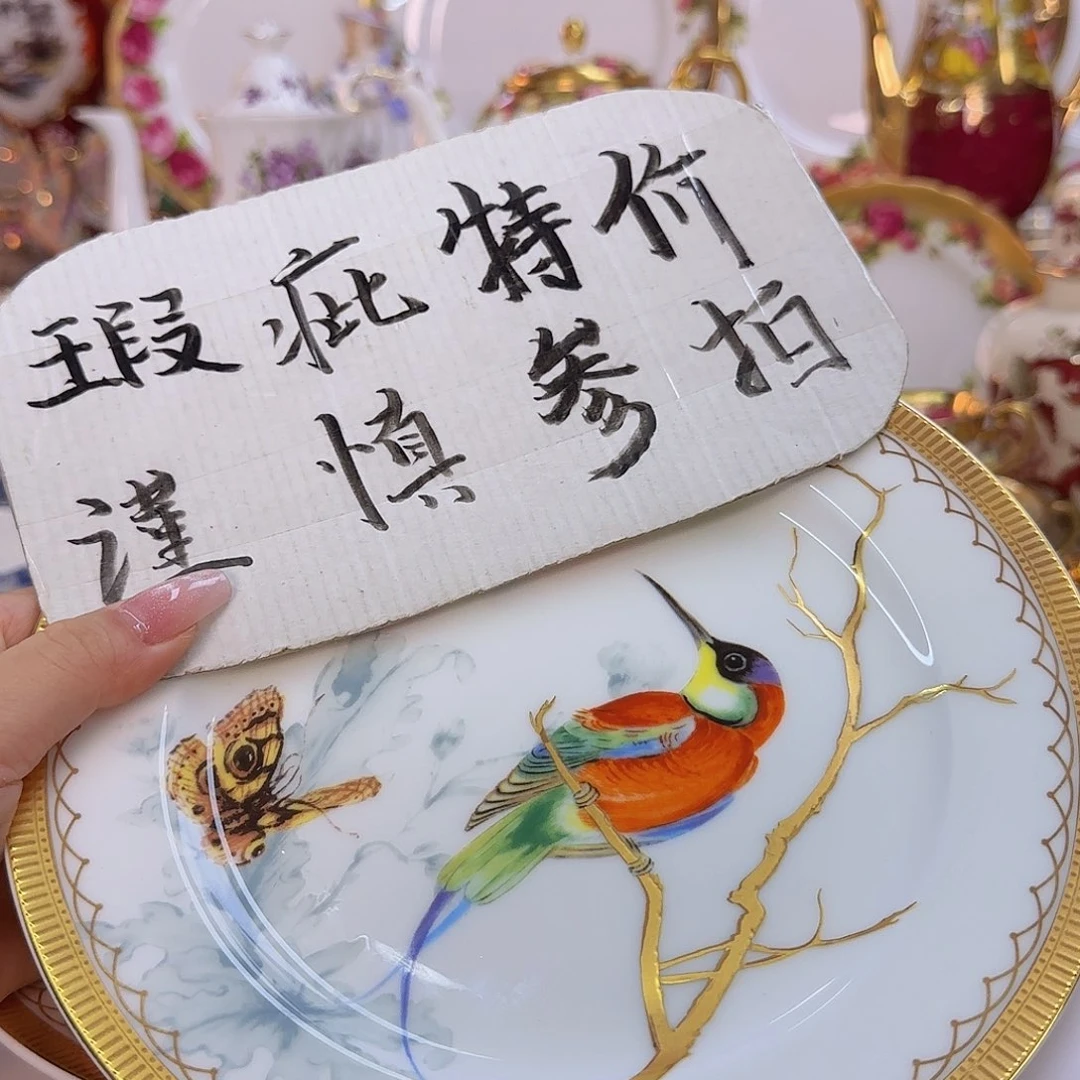 瑕疵特价
谨慎参拍